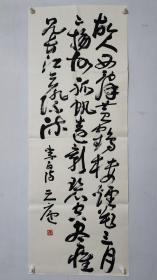 故人西辞黄鹤楼烟花三月
下扬州孤帆远影碧空尽惟
见长江天际流
李白诗